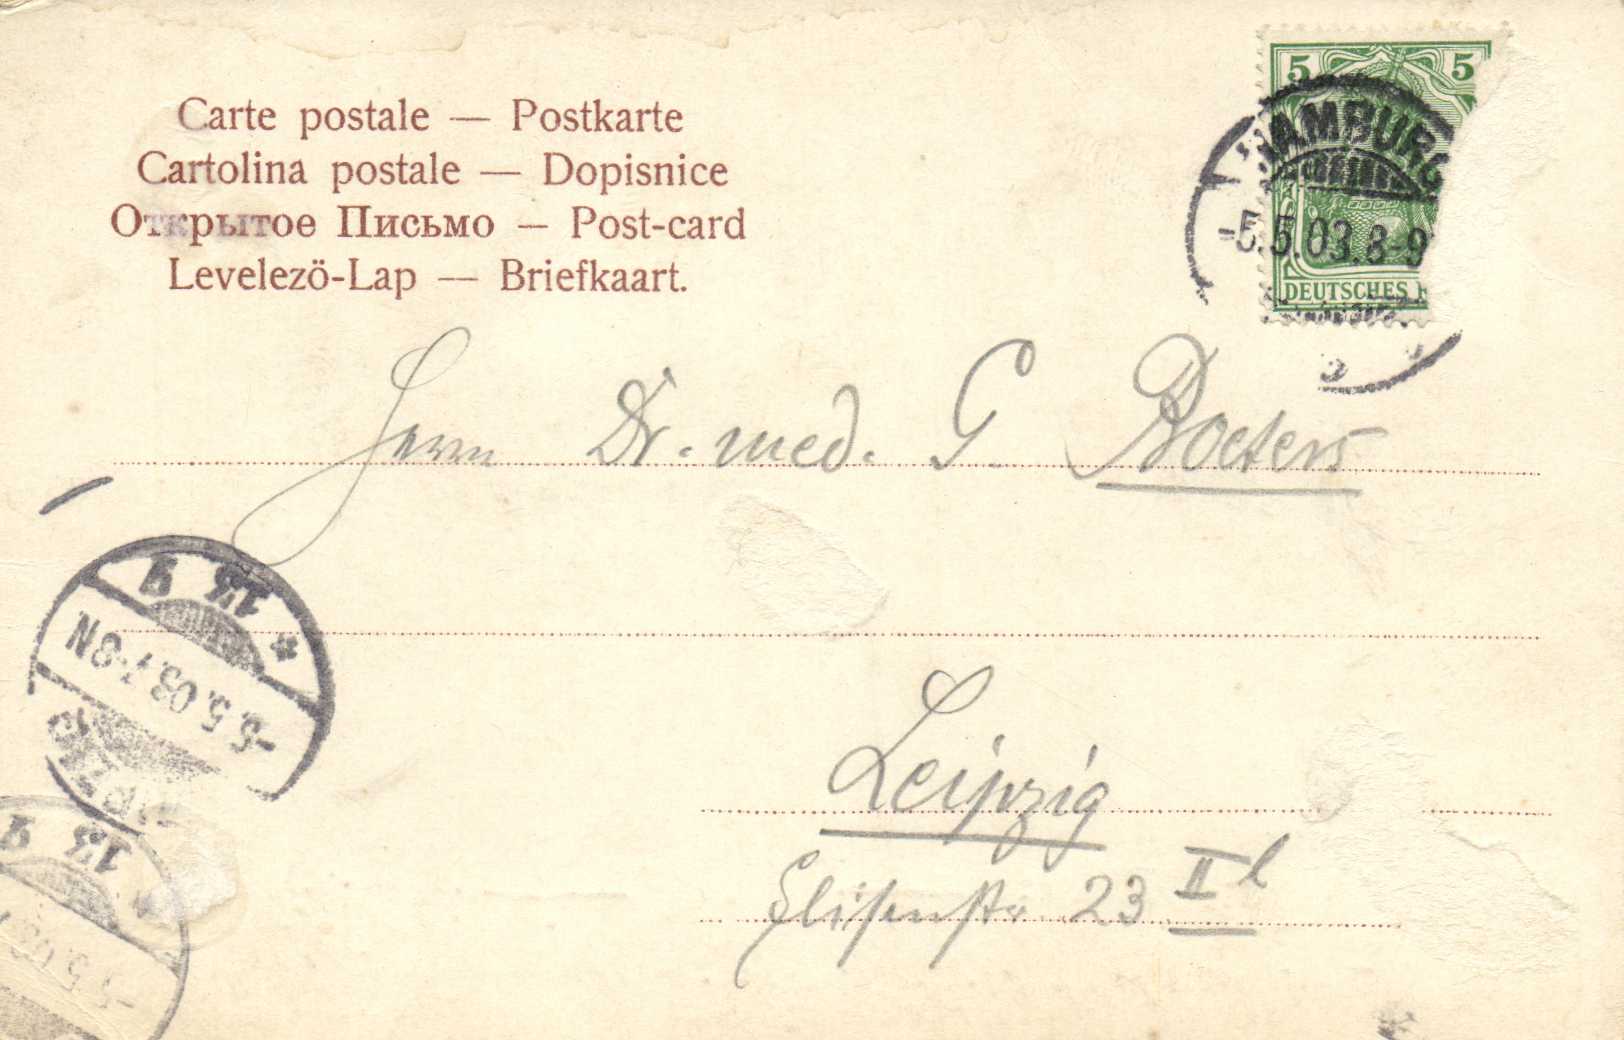 Carte postale — Postkarte
Cartolina postale — Dopisnice
Открытое Письмо — Post-card
Levelezö-Lap — Briefkaart.
5 5
HAMBURG
-5.5.03.8-9
DEUTSCHES
Herrn Dr. med. G. Boeters
13 9
-5.5.03.7-8N
Leipzig
Elisenstr 23 II l
13 9
-5.5.03